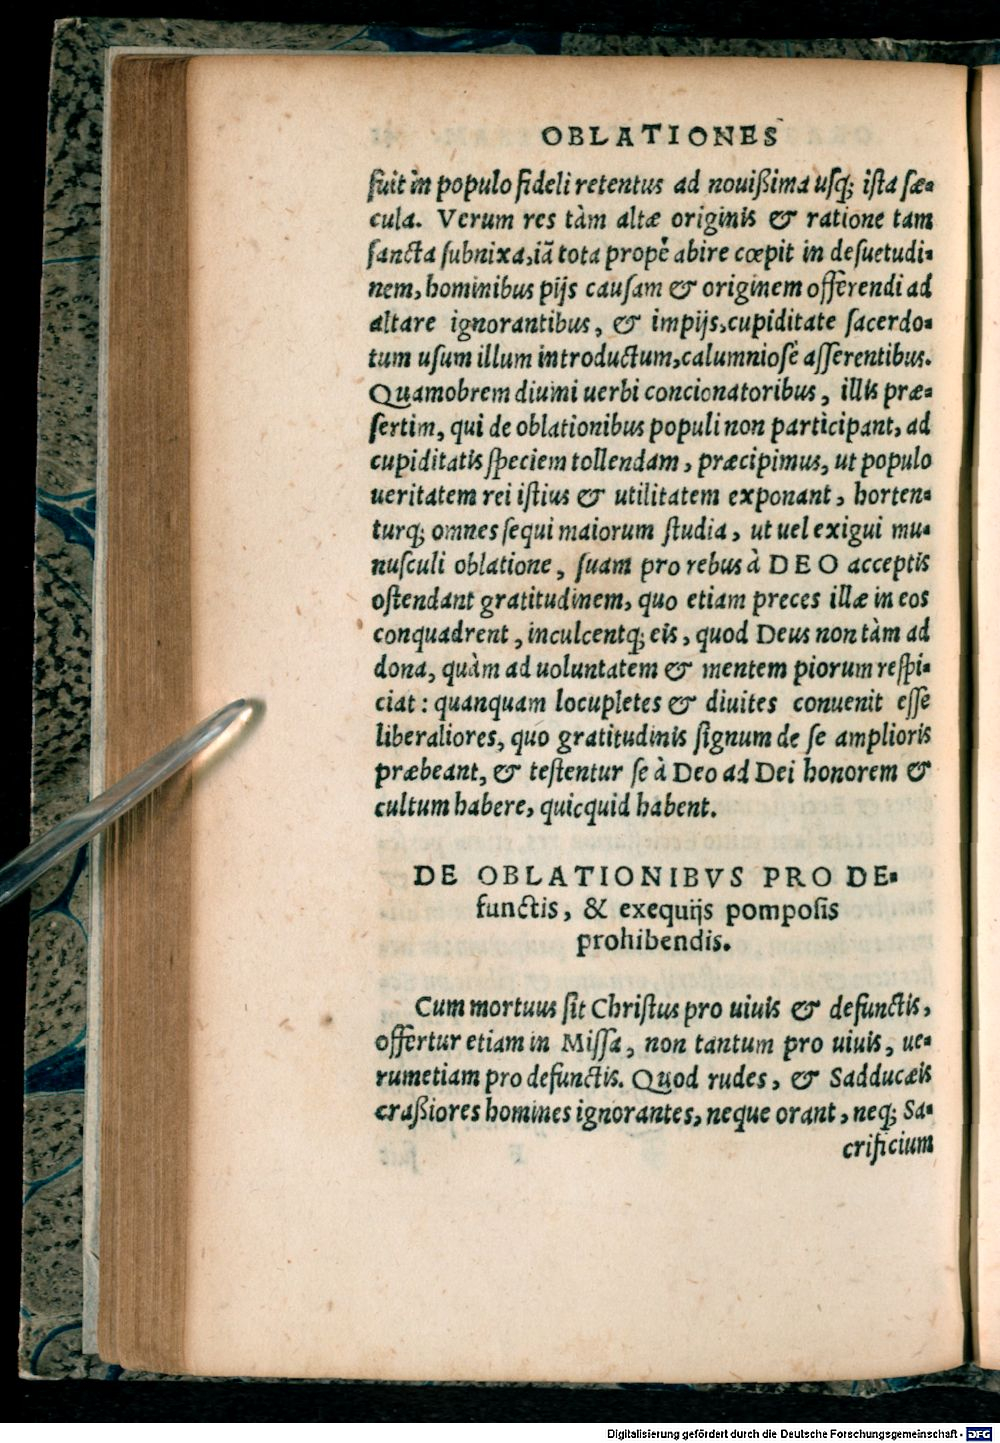 OBLATIONES
fuit in populo fideli retentus ad nouißima usq; ista sæ-
cula. Verum res tàm altæ originis & ratione tam
sancta subnixa, iã tota propè abire cœpit in desuetudi-
nem, hominibus pijs causam & originem offerendi ad
altare ignorantibus, & impijs, cupiditate sacerdo-
tum usum illum introductum, calumniosè asserentibus.
Quamobrem diuini uerbi concionatoribus, illis præ-
sertim, qui de oblationibus populi non participant, ad
cupiditatis speciem tollendam, præcipimus, ut populo
ueritatem rei istius & utilitatem exponant, horten-
turq; omnes sequi maiorum studia, ut uel exigui mu-
nusculi oblatione, suam pro rebus à DEO acceptis
ostendant gratitudinem, quo etiam preces illæ in eos
conquadrent, inculcentq; eis, quod Deus non tàm ad
dona, quàm ad uoluntatem & mentem piorum respi-
ciat: quanquam locupletes & diuites conuenit esse
liberaliores, quo gratitudinis signum de se amplioris
præbeant, & testentur se à Deo ad Dei honorem &
cultum habere, quicquid habent.
DE OBLATIONIBVS PRO DE-
functis, & exequijs pomposis
prohibendis.
Cum mortuus sit Christus pro uiuis & defunctis,
offertur etiam in Missa, non tantum pro uiuis, ue-
rumetiam pro defunctis. Quod rudes, & Sadducæis
craßiores homines ignorantes, neque orant, neq; Sa-
crificium
Digitalisierung gefördert durch die Deutsche Forschungsgemeinschaft - DFG